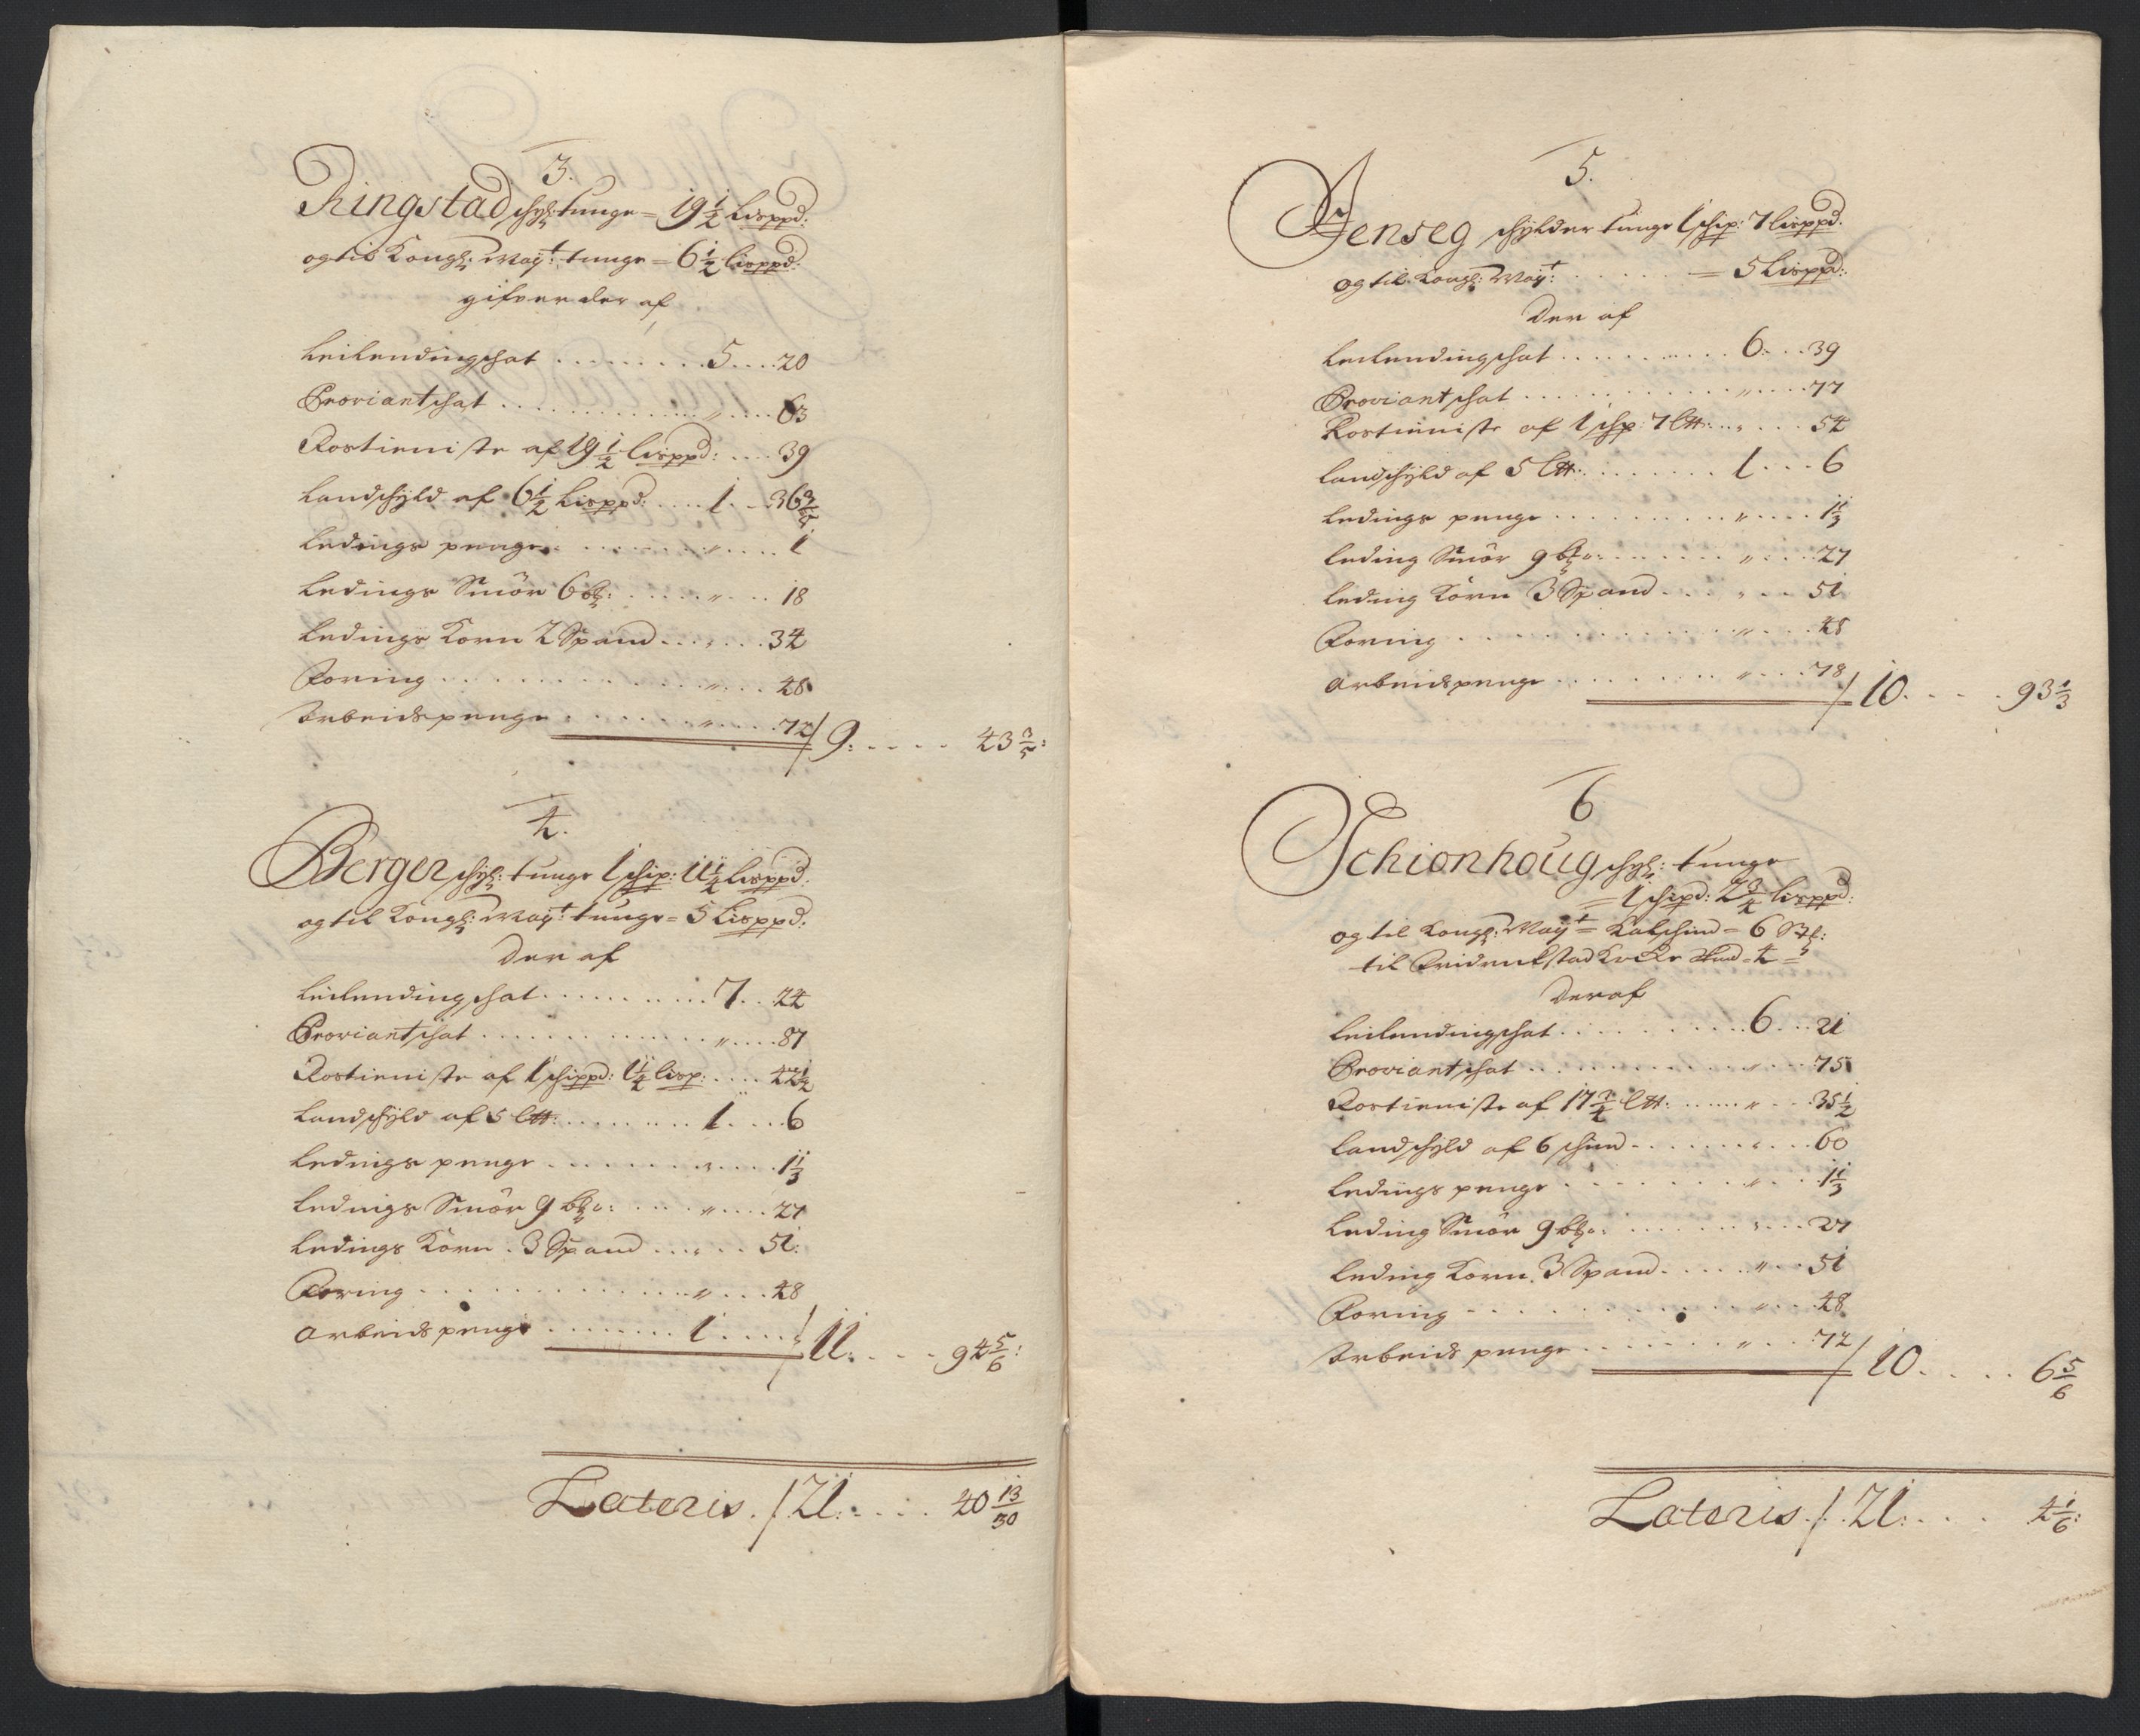 3.
Ringstad schyl: tunge = 19 1/2 Lisppd:
og til Kongl: Mayt: tunge = 6 1/2 lisppd:
gifver der af
Leilendingschat . . . . . . . . 5 . . . . 20
Proviantschat . . . . . . . . . . . . „ . . . . 63
Rostieniste af 19 1/2 Lisppd: . . . . 39
Landschyld af 6 1/2 Lisppd: . . . . 1 . . . 36 3/5
Ledings penge . . . . . . . . „ . . . . 1
Ledings Smör 6 : . . . . . „ . . . . 18
Ledings Korn 2 Spand . . . „ . . . 34
Foring . . . . . . . . . . . . . „ . . . 48
Arbeidspenge . . . . . . . . „ . . . . 72 / 9: . . . . 43 3/5:
4.
Berger schyl: tunge 1 schip: 11 1/4 Lisppd:
og til Kongl: Mayt: tunge = 5 Lisppd:
Der af
Leilendingschat . . . . . . . . . . . 7 . . 24
Proviantschat . . . . . . . . . . . . . „ . . . . 87
Rostieniste af 1 schippd: 1 1/4 lisp: . . . . 42 1/2
Landschyld af 5 Ltt: . . . . . . . . . 1 . . . . 6
Ledings penge . . . . . . . . „ . . . . 1 1/3
Ledings Smör 9 : . . . . „ . . . . 27
Ledings Korn . 3 Spand . . . „ . . . 51:
Foring . . . . . . . . . . . . . „ . . . 48
Arbeids penge . . . . . . . . 1 . . . . „ / 11: . . . . 94 5/6:
Lateris . / 21: . . . . 40 13/30
5.
Jenseg schylder tunge 1 schip: 7 lisppd:
og til Kongl: Mayt: . . . . . . = 5 Lisppd:
Der af
Leilendingschat . . . . . . . . . . . 6 . . . . 39
Proviantschat . . . . . . . . . . . . „ . . . . 77
Rostieniste af 1 schp: 7 Ltt: . . „ . . . 54
Landschyld af 5 Ltt: . . . . . . . . 1 . . . 6
Ledings penge . . . . . . . . . „ . . . . 1 1/3
Leding Smör 9 : . . . . . . „ . . . . 27
Leding Korn 3 Spand . . . . „ . . . 51
Foring . . . . . . . . . . . . . „ . . . 48
Arbeidspenge . . . . . . . . . „ . . . 78 / 10 . . . . . 93 1/3
6
Schionhoug schyl: tunge
= 1 schipd: 2 3/4 lisppd:
og til Kongl: Mayt = Kalfschind = 6 Sth:
til Fridrichstad Kircke schind = 4 =
Der af
Leilendingschat . . . . . . . . . . 6 . . . 21
Proviantschat . . . . . . . . . . . . „ . . . 75
Rostieniste af 17 3/4 Ltt: . . . . . „ . . . 35 1/2
Landschyld af 6 schind . . . . . . . „ . . . 60
Ledings penge . . . . . . . . „ . . . 1 1/3
Leding Smör 9 : . . . . . . „ . . . 27
Leding Korn . 3 Spand . . . . . „ . . . 51
Foring . . . . . . . . . . . . . „ . . . 48
Arbeids penge . . . . . . . . „ . . . 72 / 10 . . . . . 6 5/6
Lateris . / . 21: . . . . 4 1/6: